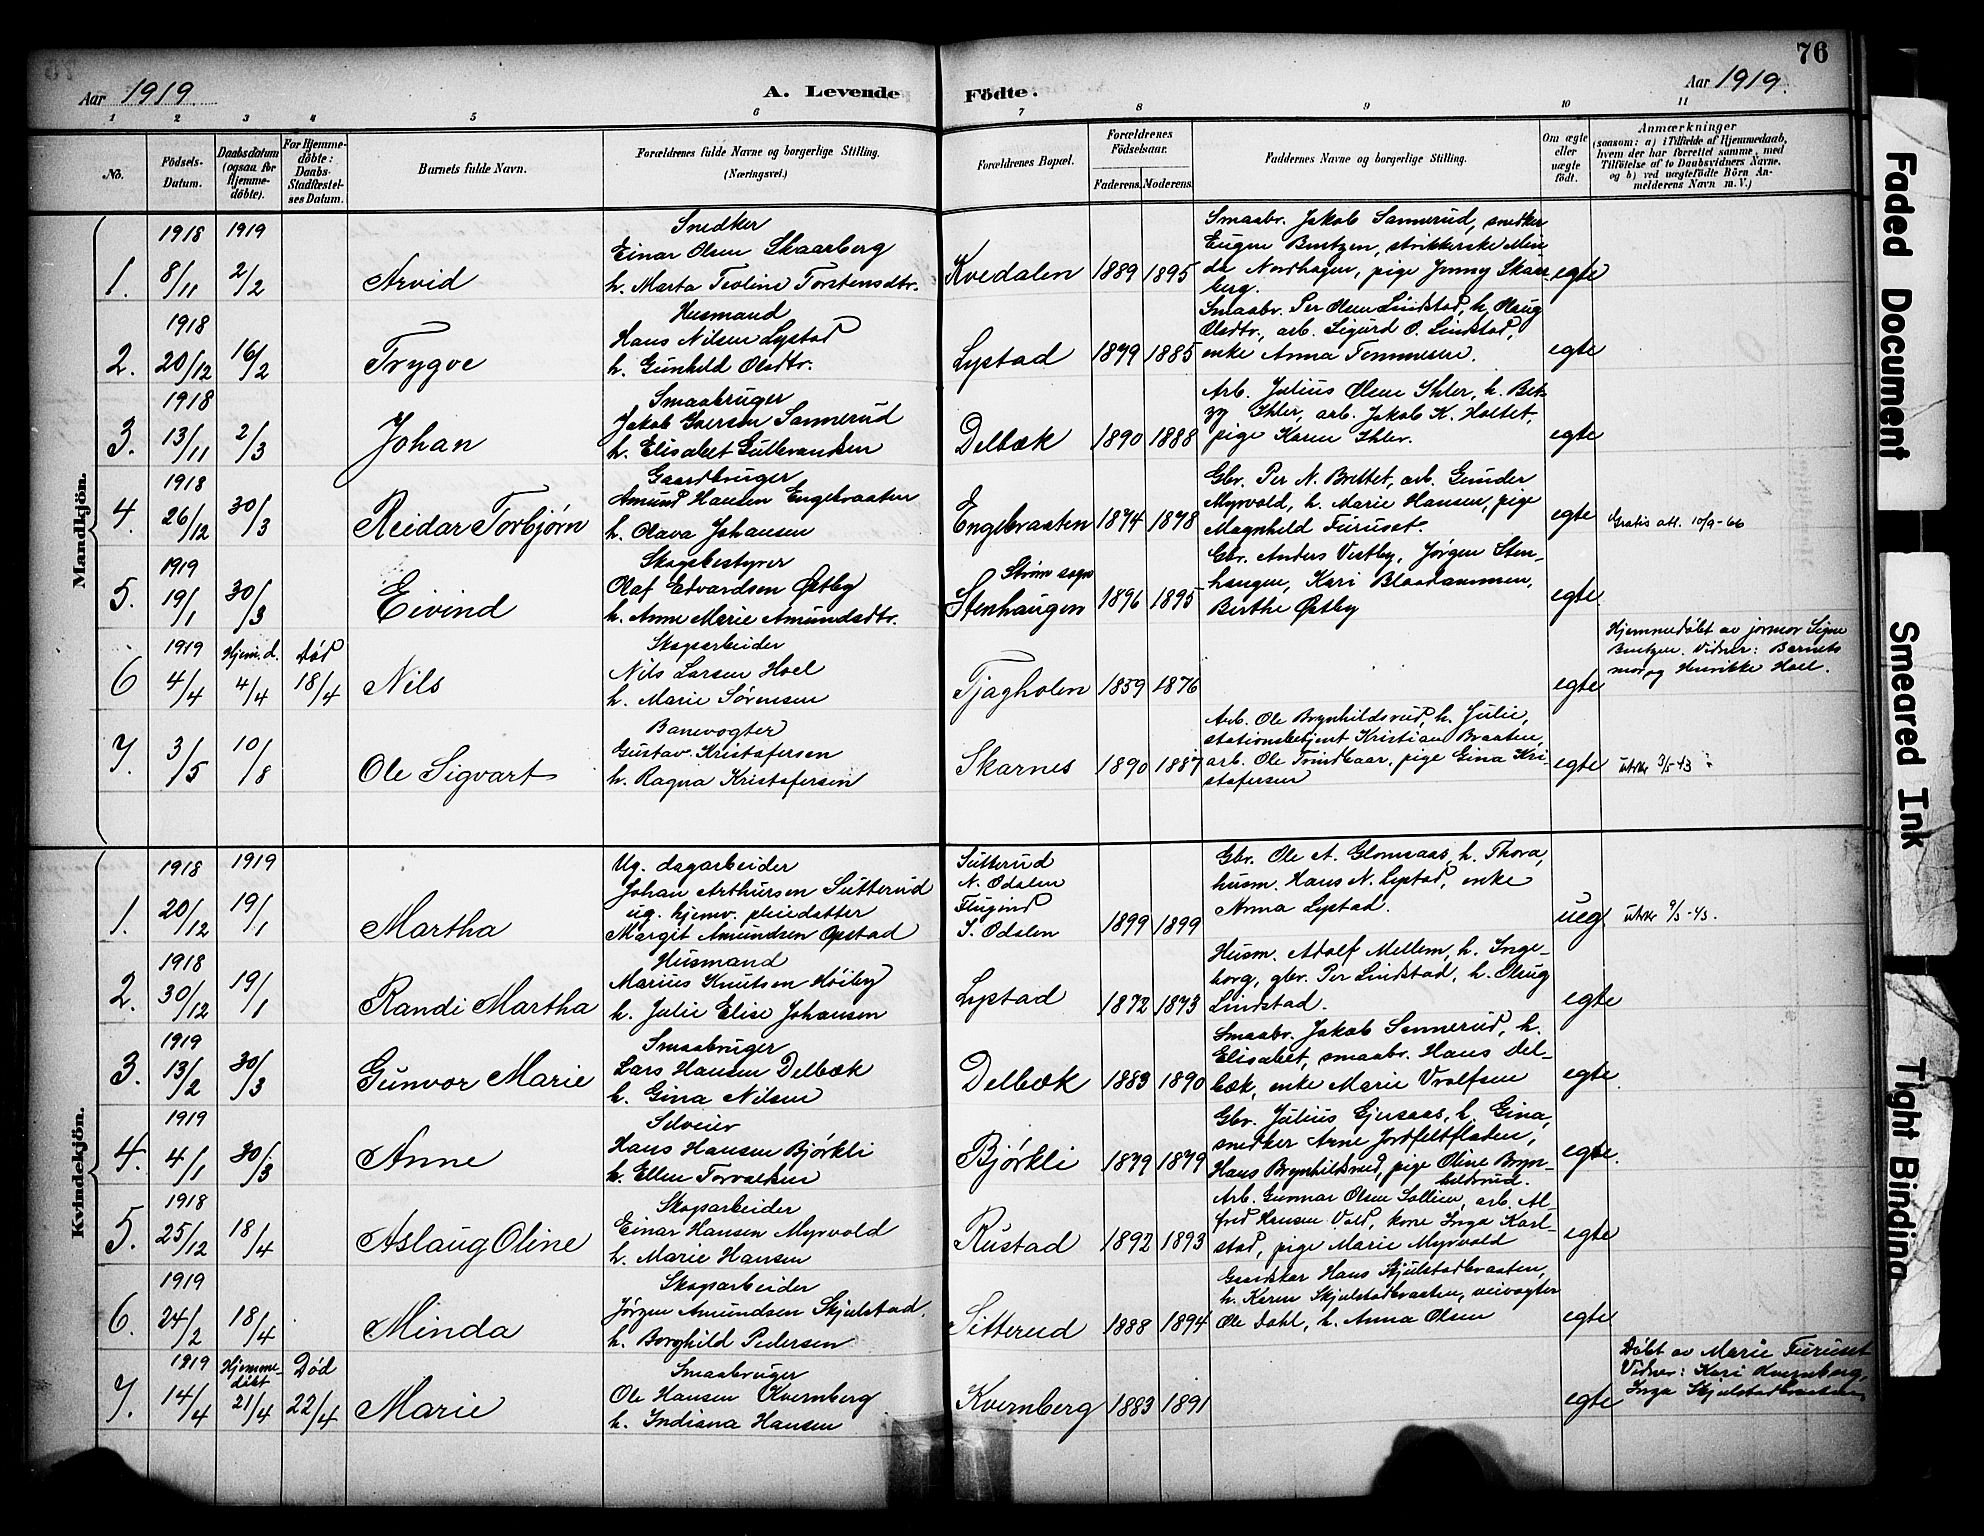 76
Aar 1919. A. Levende Födte. Aar 1919.
1 2 3 4 5 6 7 8 9 10 11
No.
Födsels-
Datum.
Daabsdatum
(ogsaa for
Hjemme-
döbte).
For Hjemme-
döbte:
Daabs-
Stadfæstel-
ses Datum.
Barnets fulde Navn.
Forældrenes fulde Navne og borgerlige Stilling.
(Næringsvei.)
Forældrenes Bopæl.
Forældrenes
Födselsaar.
Faderens. Moderens.
Faddernes Navne og borgerlige Stilling.
Om ægte
eller
uægte
födt.
Anmærkninger
(saasom: a) i Tilfælde af Hjemmedaab,
hvem der har forrettet samme, med
Tilföielse af to Daabsvidners Navne,
og b) ved uægtefödte Börn An-
melderens Navn m. V.)
Mandkjön.
1. 1918 8/11 1919 2/2 Arvid
Snedker
Einar Olsen Skaarberg
h. Marta Teoline Torstensdtr.
Kvedalen 1889 1895
Smaabr. Jakob Sannerud, snedker
Eugen Bentzen, strikkerske Min
da Nordhagen, pige Jenny Skaar
berg.
egte
2. 1918 20/12 16/2 Trygve
Husmand
Hans Nilsen Lystad
h. Gunhild Olsdtr.
Lystad 1879 1885
Smaabr. Per Olsen Lindstad, h. Olaug
Olsdtr., arb. Sigurd O. Lindstad,
enke Anna Tommesen.
egte
3. 1918 13/11 2/3 Johan
Smaabruger
Jakob Iversen Sannerud
h. Elisabet Gulbrandsen
Delbæk 1890 1888
Arb. Julius Olsen Ihler, h. Bet-
zy Ihler, arb. Jakob K. Holtet,
pige Karen Ihler.
egte
4. 1918 26/12 30/3 Reidar Torbjørn
Gaardbruger
Amund Hansen Engebraaten
h. Olava Johansen
Engebraaten 1874 1878
Gbr. Per N. Brettet, arb. Gunder
Myrvold, h. Marie Hansen, pige
Magnhild Furuset.
egte Gratis att. 10/9-66
5. 1919 19/1 30/3 Eivind
Skogsbestyrer
Olaf Edvardsen Østby
h. Anne Marie Amundsdtr.
Strøm sogn
Stenhaugen 1896 1895
Gbr. Anders Vestby, Jørgen Sten-
haugen, Kari Blaadammen,
Birthe Østby
egte.
6 1919 4/4 Hjem.d. 4/4 Død 18/4 Nils
Skogarbeider
Nils Larsen Hoel
h. Marie Sørensen
Tjagholen 1859 1876
egte
Hjemmedøbt av jormor Signe
Bentzen. Vidner: Barnets
mor og Henrikke Hoel.
7. 3/5 10/8 Ole Sigvart
Banevogter
Gustav Kristofersen
h. Ragna Kristofersen
Skarnes 1890 1887
Arb. Ole Brynhildsrud, h. Julie,
stationsbetjent Kristian Braaten,
arb. Ole Trindbaar, pige Gina Kri-
stofersen
egte utskr 3/5-43
Kvindekjön.
1. 1918 20/12 1919 19/1 Martha
Ug. dagarbeider
Johan Arthursen Sutterud
ug. hjemv. pleiedatter
Margit Amundsen Opstad
Sutterud
N. Odalen
Flugind
S. Odalen 1899 1899
Gbr. Ole A. Glomsaas, h. Thora,
husm. Hans N. Lystad, enke
Anna Lystad.
ueg. utskr 9/3-43.
2. 1918 30/12 19/1 Randi Martha
Husmand
Marius Knutsen Høiby
h. Julie Elise Johansen
Lystad 1872 1873
Husm. Adolf Mellem, h. Inge-
borg, gbr. Per Lindstad, h. Olaug
Lindstad.
egte
3. 1919 13/2 30/3 Gunvor Marie
Smaabruger
Lars Hansen Delbæk
h. Gina Nilsen
Delbæk 1883 1890
Smaabr. Jakob Sannerud, h.
Elisabet, smaabr. Hans Del-
bæk, enke Marie Vralfsen
egte.
4. 1919 4/1 30/3 Anne
Selveier
Hans Hansen Bjørkli
h. Ellen Torvaldsen
Bjørkli 1879 1879
Gbr. Julius Gjersaas, h. Gina,
snedker Arne Jordfeltfladen,
Hans Brynhildsrud, pige Oline Bryn-
hildsrud.
egte.
5. 1918 25/12 18/4 Aslaug Oline
Skogarbeider
Einar Hansen Myrvold
h. Marie Hansen
Rustad 1892 1893
Arb. Gunnar Olsen Sollien, arb. Al-
fred Hansen Vold, kone Inga Karl-
stad, pige Marie Myrvold
egte
6. 1919 24/2 18/4 Minda
Skogsarbeider
Jörgen Amundsen Skjulstad.
h. Borghild Pedersen
Sitterud 1888 1894
Gaardskar Hans Skjulstadbraaten,
h. Karen Skjulstadbraaten, veivogter
Ole Dahl, h. Anna Olsen
egte
7. 1919 14/4 Hjemme-
døbt 21/4 Død 22/4 Marie
Smaabruger
Ole Hansen Kvernberg
h. Indiana Hansen
Kvernberg 1883 1891
egte
Døbt av Marie Furuset
Vidner: Kari Kvernberg,
Inga Skjulstadbraaten
Faded Document
Smeared Ink
Tight Binding